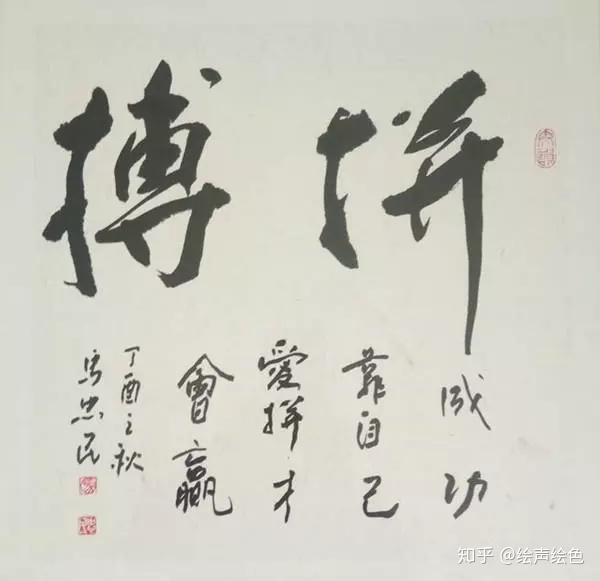 拼搏
成功
靠自己
愛拼才
會贏
丁酉之秋
馬忠民
知乎 @绘声绘色